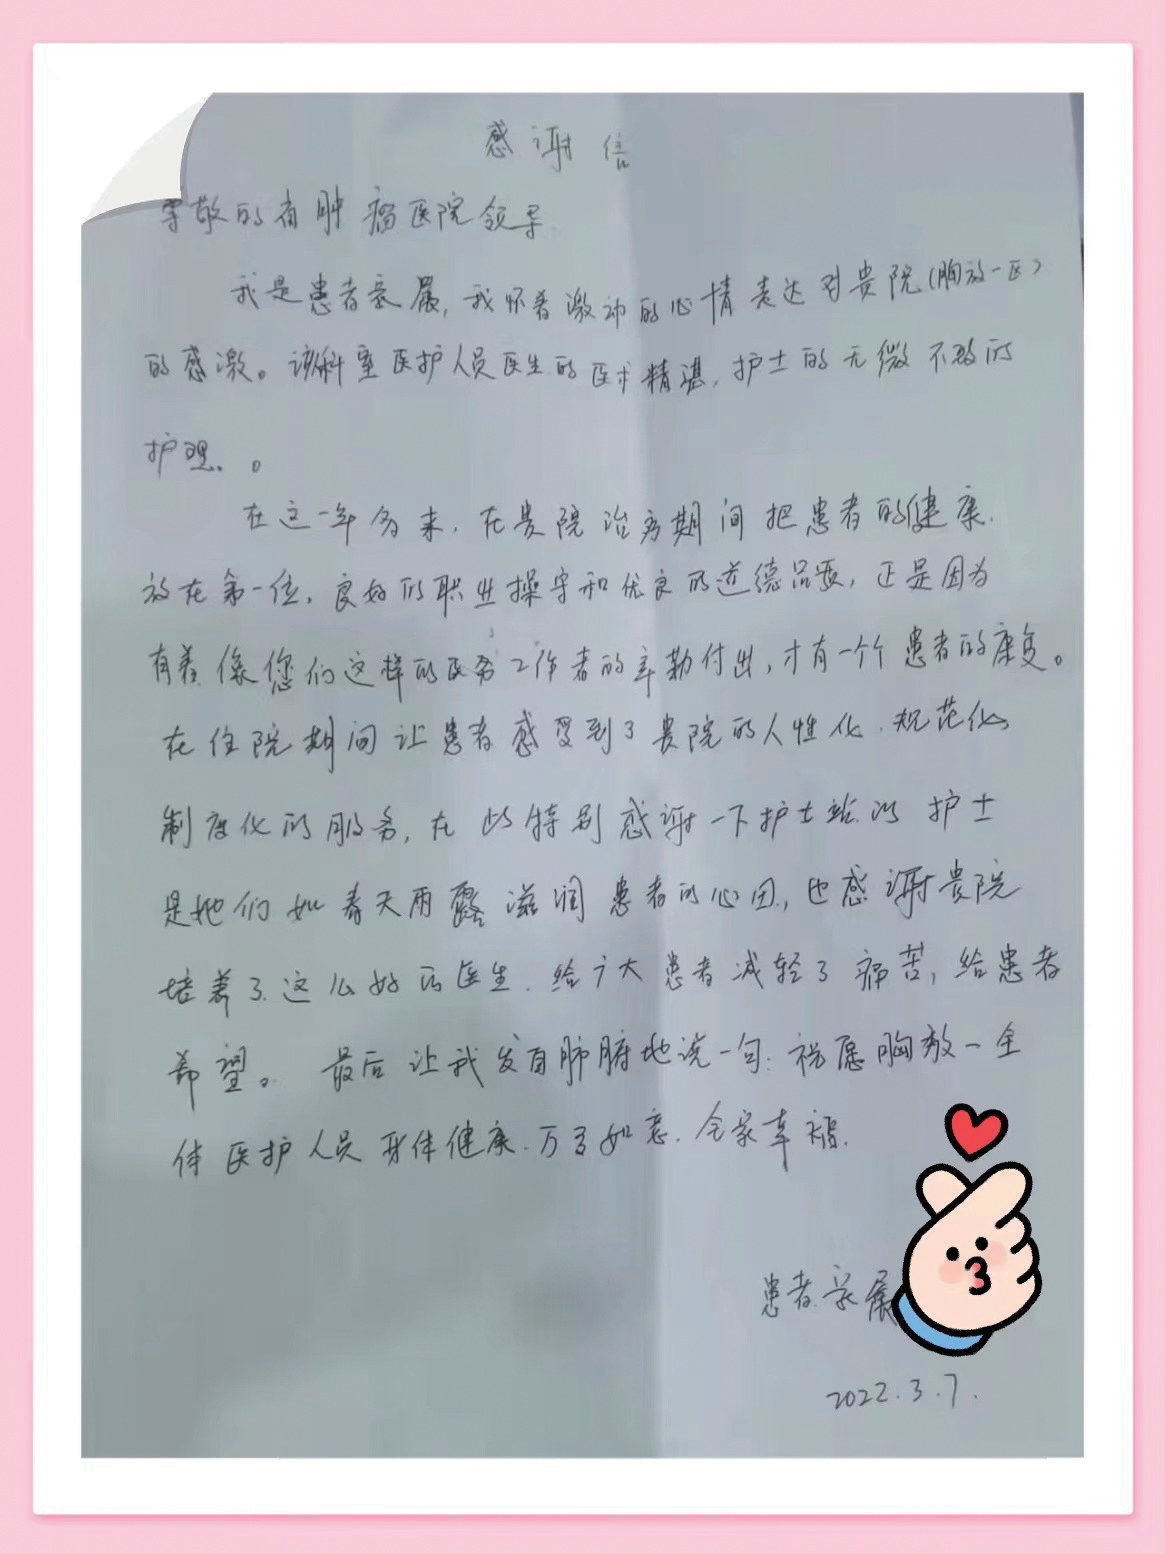 感谢信
尊敬的省肿瘤医院领导
我是患者家属,我怀着激动的心情表达对贵院(胸放一区)
的感激。该科室医护人员医生的医术精湛,护士的无微不致的
护理、。
在这一年多来,在贵院治疗期间把患者的健康.
放在第一位,良好的职业操守和优良的道德品质,正是因为
有着像您们这样的医务工作者的辛勤付出,才有一个个患者的康复。
在住院期间让患者感受到了贵院的人性化.规范化
制度化的服务,在此特别感谢一下护士站的护士
是她们如春天雨露滋润患者的心田,也感谢贵院
培养了这么好的医生.给广大患者减轻了痛苦,给患者
希望。最后让我发自肺腑地说一句:祝愿胸放一全
体医护人员身体健康.万事如意.全家幸福.
患者家属
2022.3.7.